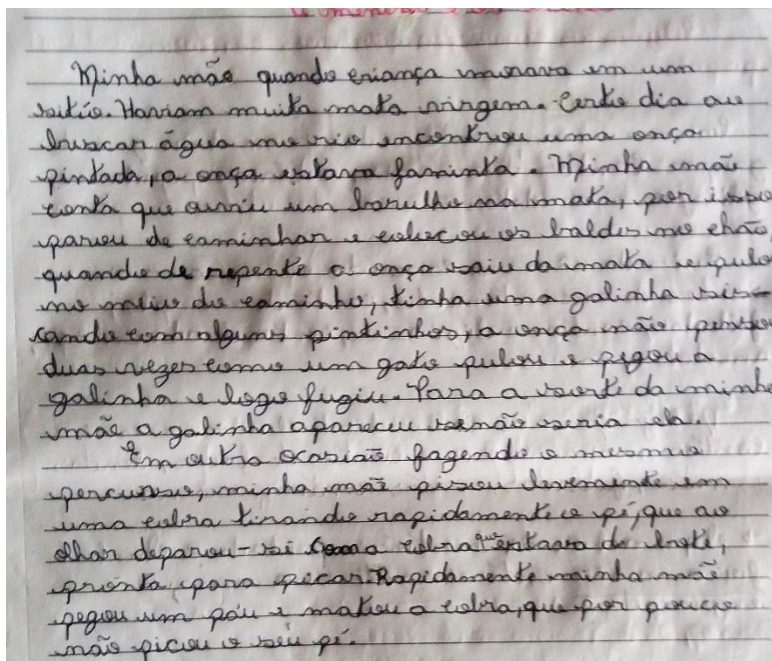 Minha mão quando criança morava em um
sitio. Haviam muita mata virgem. Certo dia ao
buscar água no rio encontrou uma onça
pintada, a onça estava faminta. Minha mãe
conta que ouviu um barulho na mata, por isso
parou de caminhar e colocou os baldes no chão,
quando de repente a onça saiu da mata e pulo
no meio do caminho, tinha uma galinha sis-
cando com alguns pintinhos, a onça não pensou
duas vezes como um gato pulou e pegou a
galinha e logo fugiu. Para a sorte da minha
mãe a galinha apareceu senão seria ela.
Em outra ocasião fazendo o mesmo
percurso, minha mãe pisou levemente em
uma cobra tirando rapidamente o pé, que ao
olhar deparou-si com a cobra que estava de bote,
pronta para picar. Rapidamente minha mãe
pegou um páu e matou a cobra, que por pouco
não picou o seu pé.